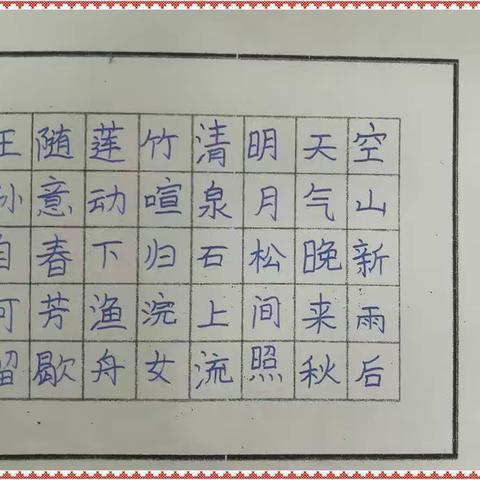 空山新雨后
天气晚来秋
明月松间照
清泉石上流
竹喧归浣女
莲动下渔舟
随意春芳歇
王孙自可留